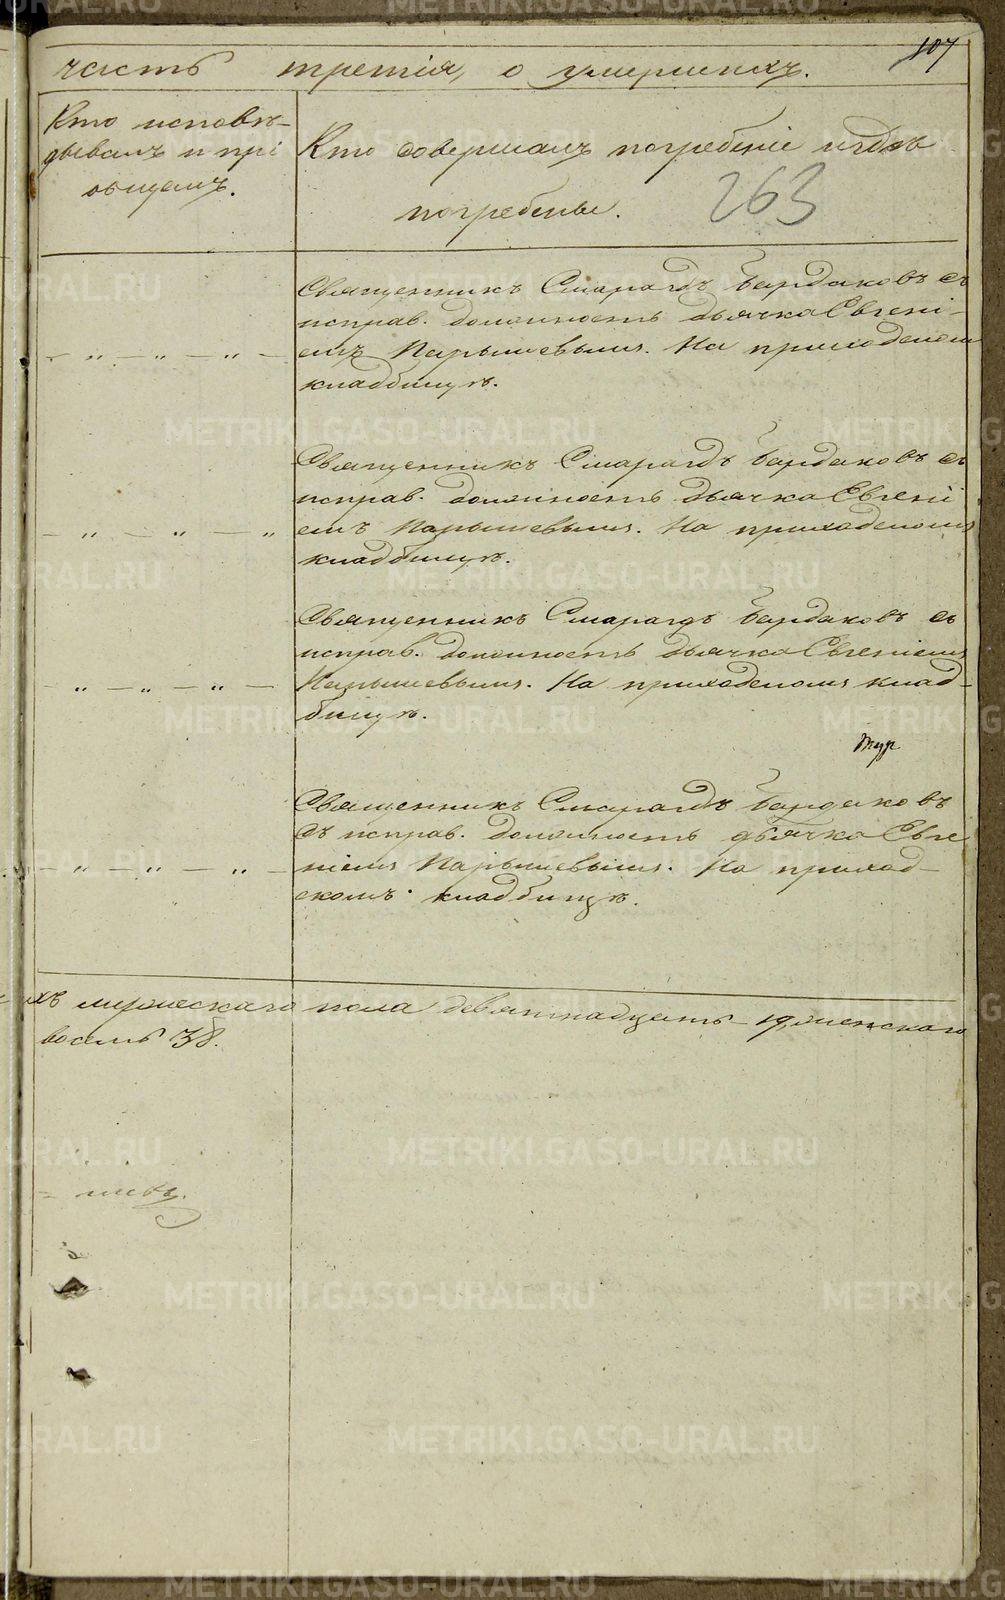 107
часть третія, о умершихъ.
Кто исповѣ-
дывалъ и прі
общалъ.
Кто совершалъ погребеніе и гдѣ
погребены.
263
Священникъ Смарагдъ Бардаковъ съ
исправ. должность дьячка Евгені-
емъ Парышевымъ. На приходскомъ
кладбищѣ.
— „ — „ — „ —
Священникъ Смарагдъ Бардаковъ съ
исправ. должность дьячка Евгені
емъ Парышевымъ. На приходскомъ
кладбищѣ.
— „ — „ — „
Священникъ Смарагдъ Бардаковъ съ
исправ. должность дьячка Евгеніемъ
Парышевымъ. На приходскомъ клад-
бищѣ.
— „ — „ — „ —
Священникъ Смарагдъ Бардаковъ
съ исправ. должность дьячка Евге
ніемъ Парышевымъ. На приход-
скомъ кладбищѣ.
— „ — „ — „ —
хъ мужескаго пола девятнадцать 19, женскаго
восемь 38.
METRIKI.GASO-URAL.RU